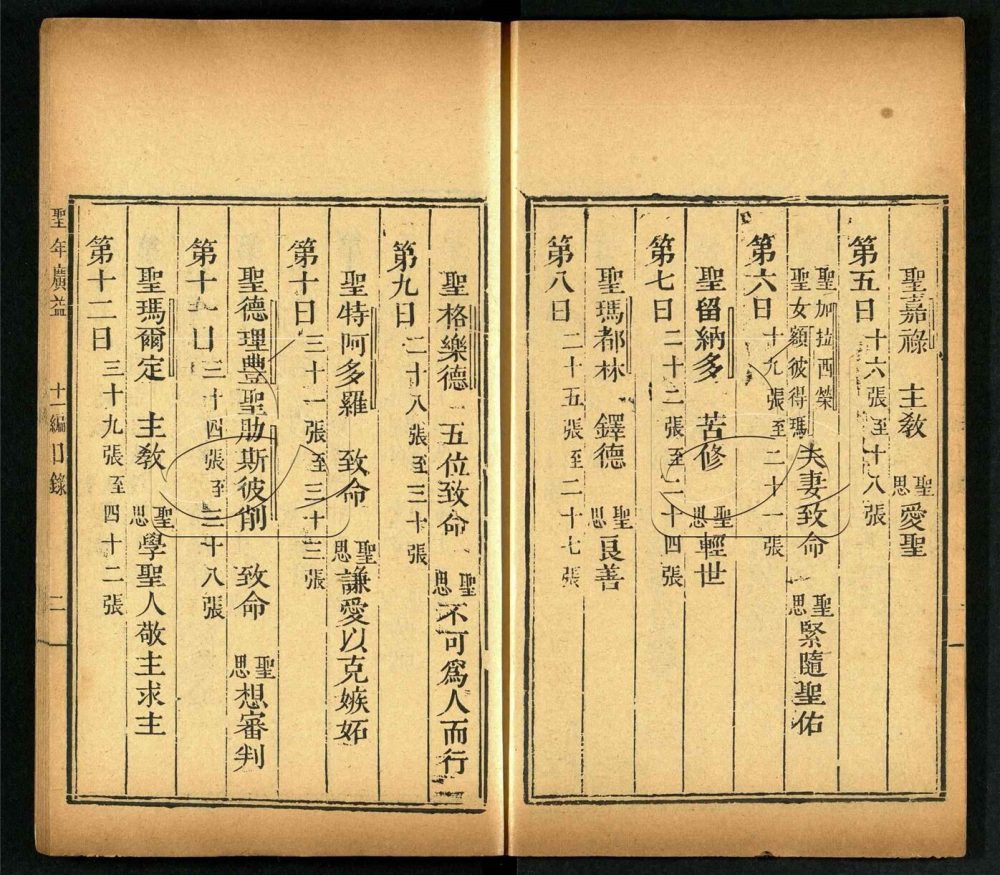 聖嘉祿 主教 聖思愛聖
第五日 十六張至十八張
聖加拉西㮣 聖女額彼得瑪 夫妻致命 聖思緊隨聖佑
第六日 十九張至二十一張
聖留納多 苦修 聖思輕世
第七日 二十二張至二十四張
聖瑪都林 鐸德 聖思良善
第八日 二十五張至二十七張
聖格樂德 五位致命 聖思不可爲人而行
第九日 二十八張至三十張
聖特阿多羅 致命 聖思謙愛以克嫉妬
第十日 三十一張至三十三張
聖德理豐聖肋斯彼削 致命 聖思想審判
第十一日 三十四張至三十八張
聖瑪爾定 主教 聖思學聖人敬主求主
第十二日 三十九張至四十二張
聖年廣益 十一編目錄 二